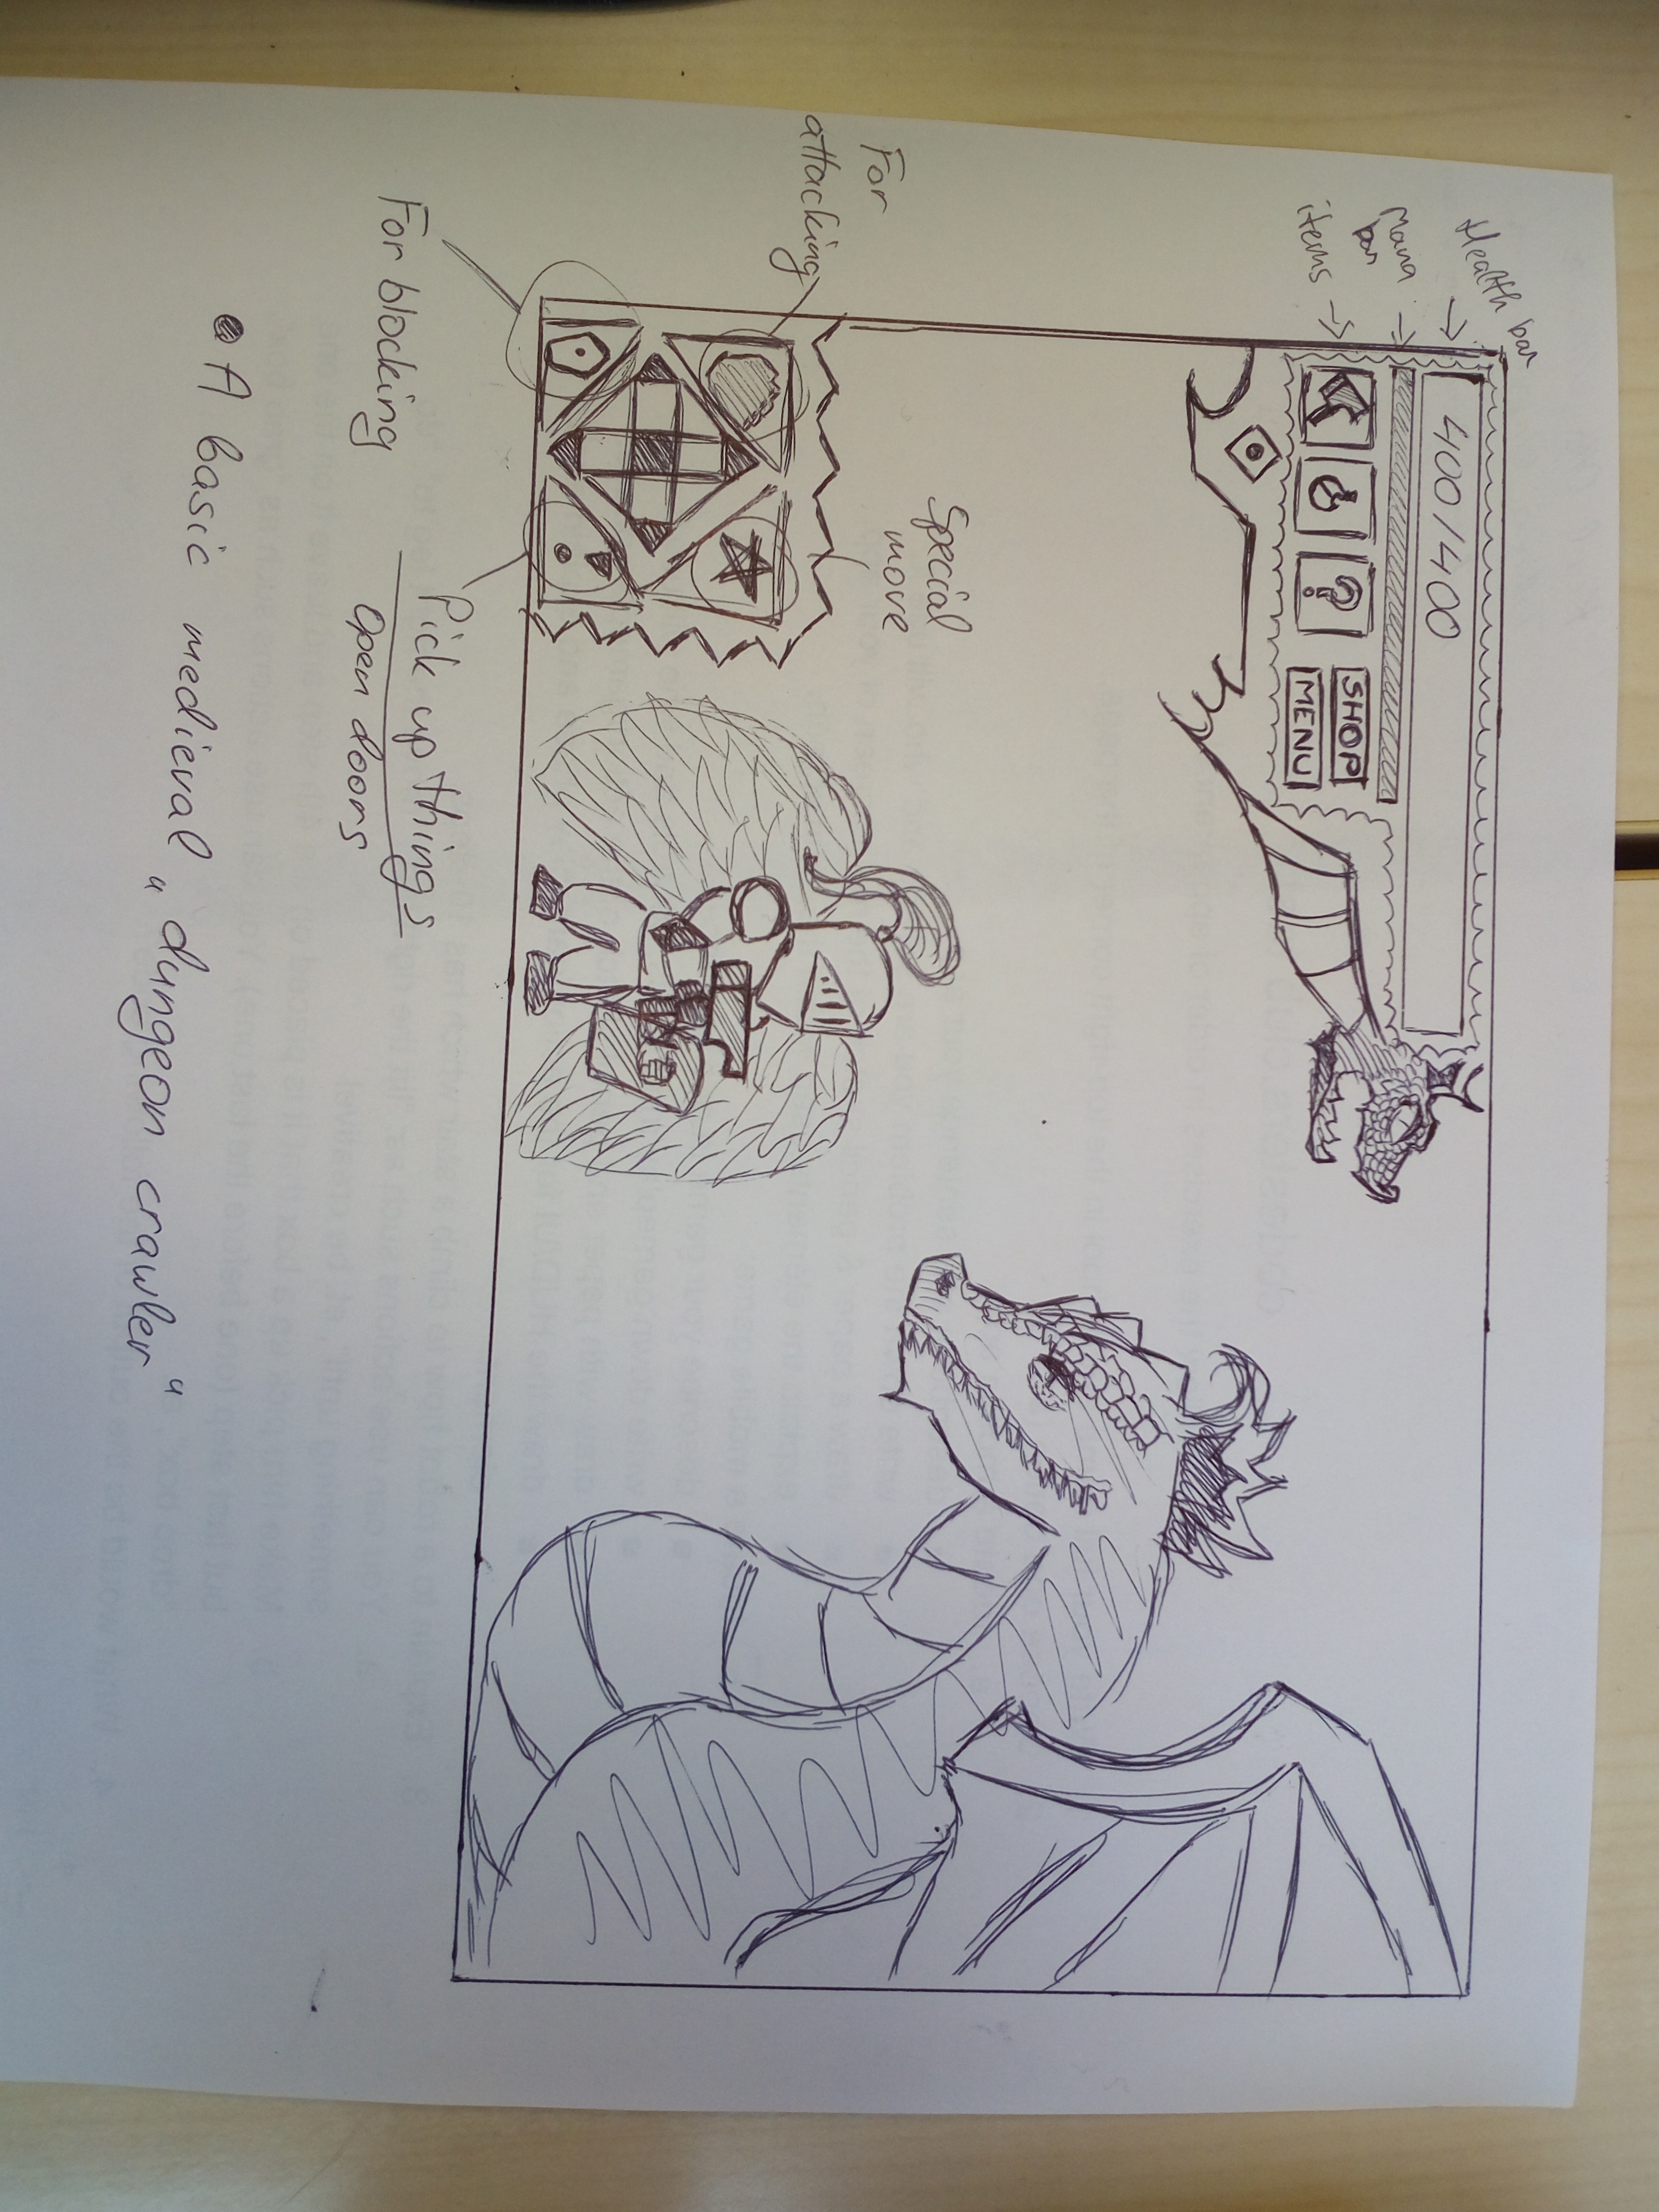 Health bar
Mana
bar
items
400/400
?
SHOP
MENU
Special
move
For
attacking
For blocking
Pick up things
Open doors
A basic medieval „dungeon crawler"